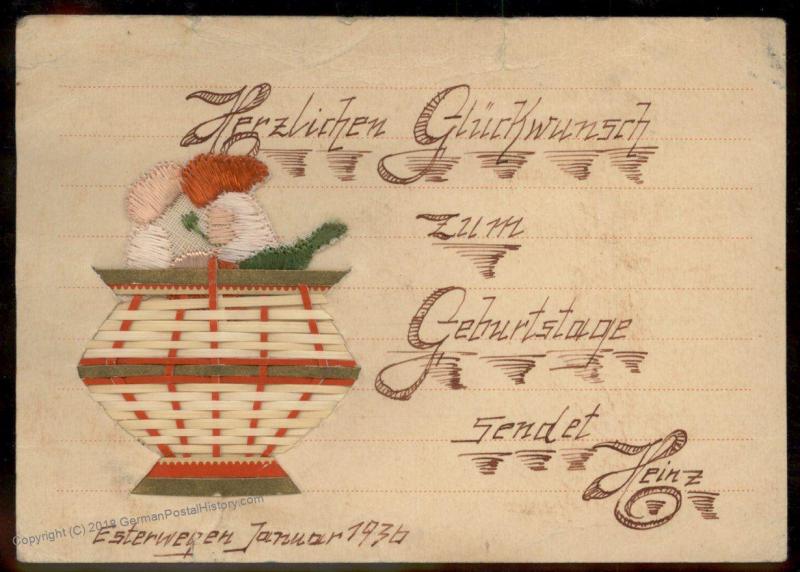 Herzlichen Glückwunsch
zum
Geburtstage
sendet
Heinz
Esterwegen Januar 1936
Copyright (C) 2018 GermanPostalHistory.com